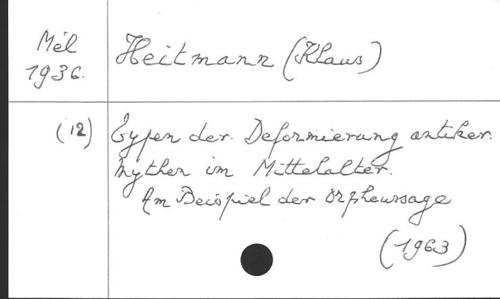 Mél
1936.
Heitmann (Klaus)
(12)
Typen der. Deformierung antiker.
Mythen im Mittelalter.
Am Beispiel der Orpheussage
(1963)